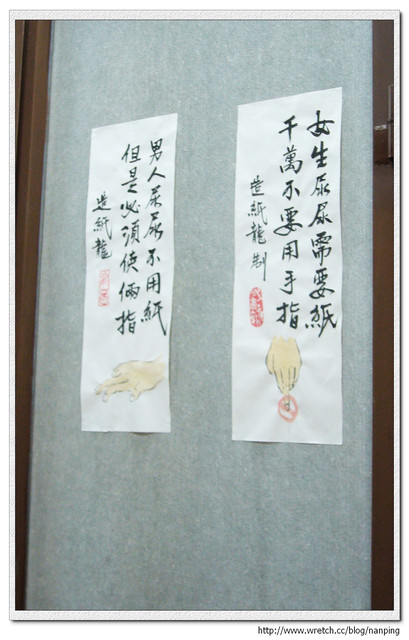 女生尿尿需要紙
千萬不要用手指
造紙龍制
男人尿尿不用紙
但是必須使倆指
造紙龍
http://www.wretch.cc/blog/nanping